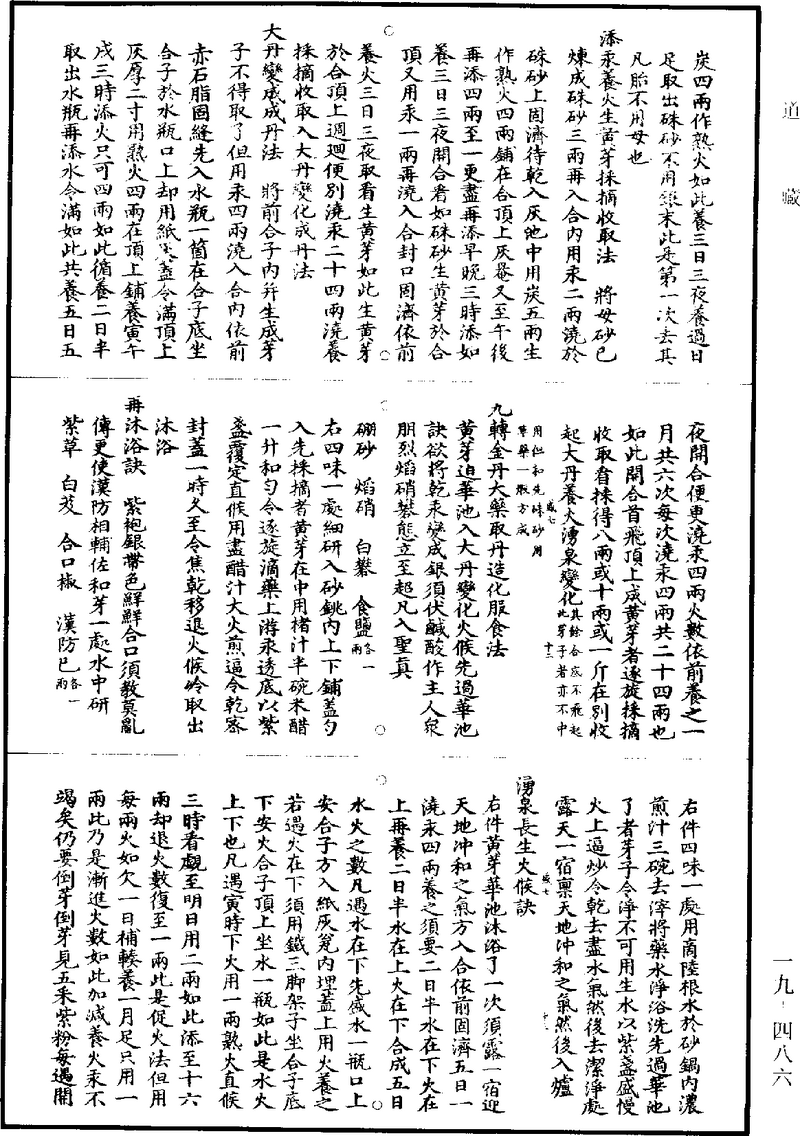 道藏
一九·四八六
炭四兩作熟火如此養三日三夜養過日
足取出硃砂不用銀末此是第一次去其
凡胎不用母也
添汞養火生黃芽採摘收取法　將母砂已
煉成硃砂三兩再入合內用汞二兩澆於
硃砂上固濟待乾入灰池中用炭五兩生
作熟火四兩鋪在合頂上灰㬱又至午後
再添四兩至一更盡再添早晚三時添如
養三日三夜開合看如硃砂生黃芽於合
頂又用汞一兩再澆入合封口固濟依前
養火三日三夜取看生黃芽如此生黃芽
於合頂上週迴便別澆汞二十四兩澆養
採摘收取入大丹變化成丹法
大丹變成成丹法　將前合子內幷生成芽
子不得取了但用汞四兩澆入合內依前
赤石脂固縫先入水瓶一箇在合子底坐
合子於水瓶口上却用紙灰蓋令滿頂上
灰厚二寸用熟火四兩在頂上鋪養寅午
戌三時添火只可四兩如此循養二日半
取出水瓶再添水令滿如此共養五日五
夜開合便更澆汞四兩火數依前養之一
月共六次每次澆汞四兩共二十四兩也
如此開合首飛頂上成黃芽者逐旋採摘
收取看採得八兩或十兩或一斤在別收
起大丹養火湧泉變化其餘合底不飛起此芽子者亦不中
用但和先硃砂用草藥一服方成
九轉金丹大藥取丹造化服食法
黃芽迫華池入大丹變化火候先過華池
訣欲將乾汞變成銀須伏鹹酸作主人衆
朋烈焰硝礬態立至超凡入聖真
硼砂　焰硝　白礬　食鹽各一兩
右四味一處細研入砂銚內上下鋪蓋勻
入先採摘者黃芽在中用楮汁半碗米醋
一升和勻令逐旋滴藥上游汞透底以紫
盞覆定直候用盡醋汁大火煎逼令乾密
封蓋一時久至令焦乾移退火候冷取出
沐浴
再沐浴訣　紫袍銀帶色鮮鮮合口須教莫亂
傳更使漢防相輔佐和芽一處水中研
紫草　白芨　合口椒　漢防已各一兩
右件四味一處用商陸根水於砂鍋內濃
煎汁三碗去滓將藥水淨浴洗先過華池
了者芽子令淨不可用生水以紫盞盛慢
火上逼炒令乾去盡水氣然後去潔淨處
露天一宿稟天地冲和之氣然後入爐
湧泉長生火候訣
右件黃芽華池沐浴了一次須露一宿迎
天地冲和之氣方入合依前固濟五日一
澆汞四兩養之須要二日半水在下火在
上再養二日半水在上火在下合成五日
水火之數凡遇水在下先盛水一瓶口上
安合子方入紙灰瓮內埋蓋上用火養之
若遇火在下須用鐵三脚架子坐合子底
下安火合子頂上坐水一瓶如此是水火
上下也凡遇寅時下火用一兩熟火直候
三時看觀至明日用二兩如此添至十六
兩却退火數復至一兩此是促火法但用
每兩火如欠一日補輳養一月足只用一
兩此乃是漸進火數如此加減養火汞不
竭矣仍要倒芽倒芽見五釆紫粉每遇開